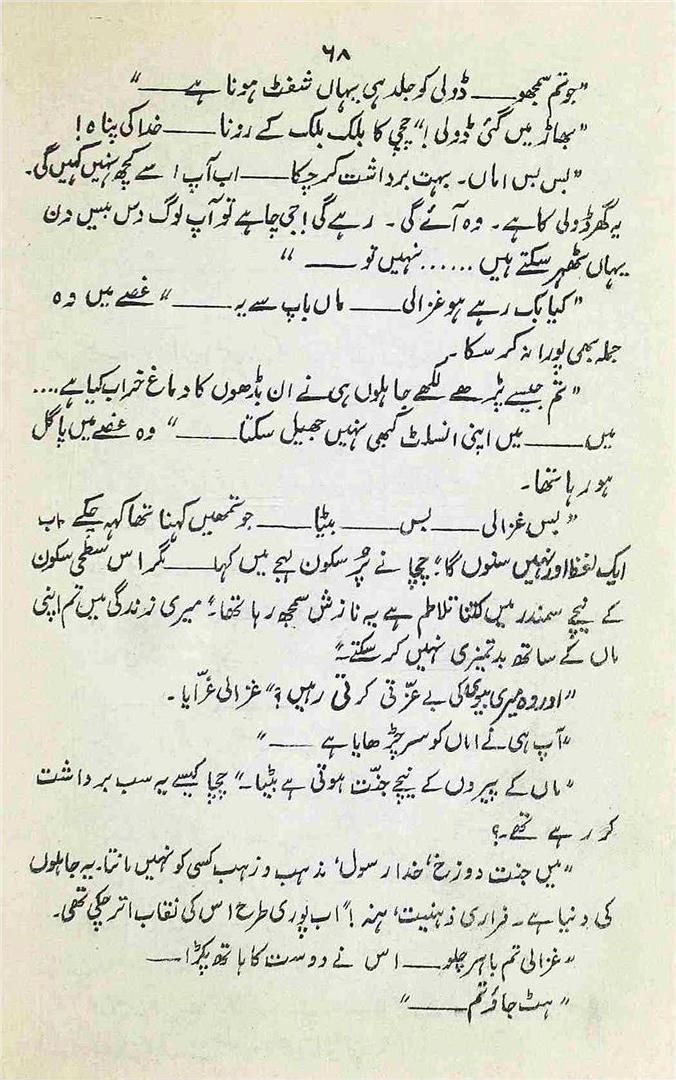 ۶۸
"جو تم سمجھو ـــــ ڈولی کو جلد ہی یہاں شفٹ ہونا ہے ـــــ"
"بھاڑ میں گئی ڈولی!" چچی کا بلک بلک کے رونا ـــــ خدا کی پناہ!
"بس بس اماں۔ بہت برداشت کر چکا ـــــ اب آپ اسے کچھ نہیں کہیں گی۔
یہ گھر ڈولی کا ہے۔ وہ آئے گی۔ رہے گی! جی چاہے تو آپ لوگ دس بیس دن
یہاں ٹھہر سکتے ہیں ...... نہیں تو ـــــ"
"کیا بک رہے ہو غزالی ـــــ ماں باپ سے یہ ـــــ" غصے میں وہ
جملہ بھی پورا نہ کر سکا۔
"تم جیسے پڑھے لکھے جاہلوں ہی نے ان بڈھوں کا دماغ خراب کیا ہے....
میں ـــــ میں اپنی انسلٹ کبھی نہیں جھیل سکتا ـــــ" وہ غصے میں پاگل
ہو رہا تھا۔
"بس غزالی ـــــ بس ـــــ بیٹا ـــــ جو تمھیں کہنا تھا کہہ چکے اب
ایک لفظ اور نہیں سنوں گا" چچا نے پُر سکون لہجے میں کہا ـــــ مگر اس سطحی سکون
کے نیچے سمندر میں کتنا تلاطم ہے یہ نازش سمجھ رہا تھا۔ "میری زندگی میں تم اپنی
ماں کے ساتھ بدتمیزی نہیں کر سکتے۔"
"اور وہ میری بیوی کی بے عزّتی کرتی رہیں؟" غزالی غرّایا۔
"آپ ہی نے اماں کو سر چڑھایا ہے ـــــ"
"ماں کے پیروں کے نیچے جنّت ہوتی ہے بیٹا۔" چچا کیسے یہ سب برداشت
کر رہے تھے۔؟
"میں جنت دوزخ، خدا رسول، مذہب وزہب کسی کو نہیں مانتا۔ یہ جاہلوں
کی دنیا ہے۔ فراری ذہنیت، ہنہ!" اب پوری طرح اس کی نقاب اتر چکی تھی۔
"غزالی تم باہر چلو ـــــ اس نے دوست کا ہاتھ پکڑا ـــــ
"ہٹ جاؤ تم ـــــ"